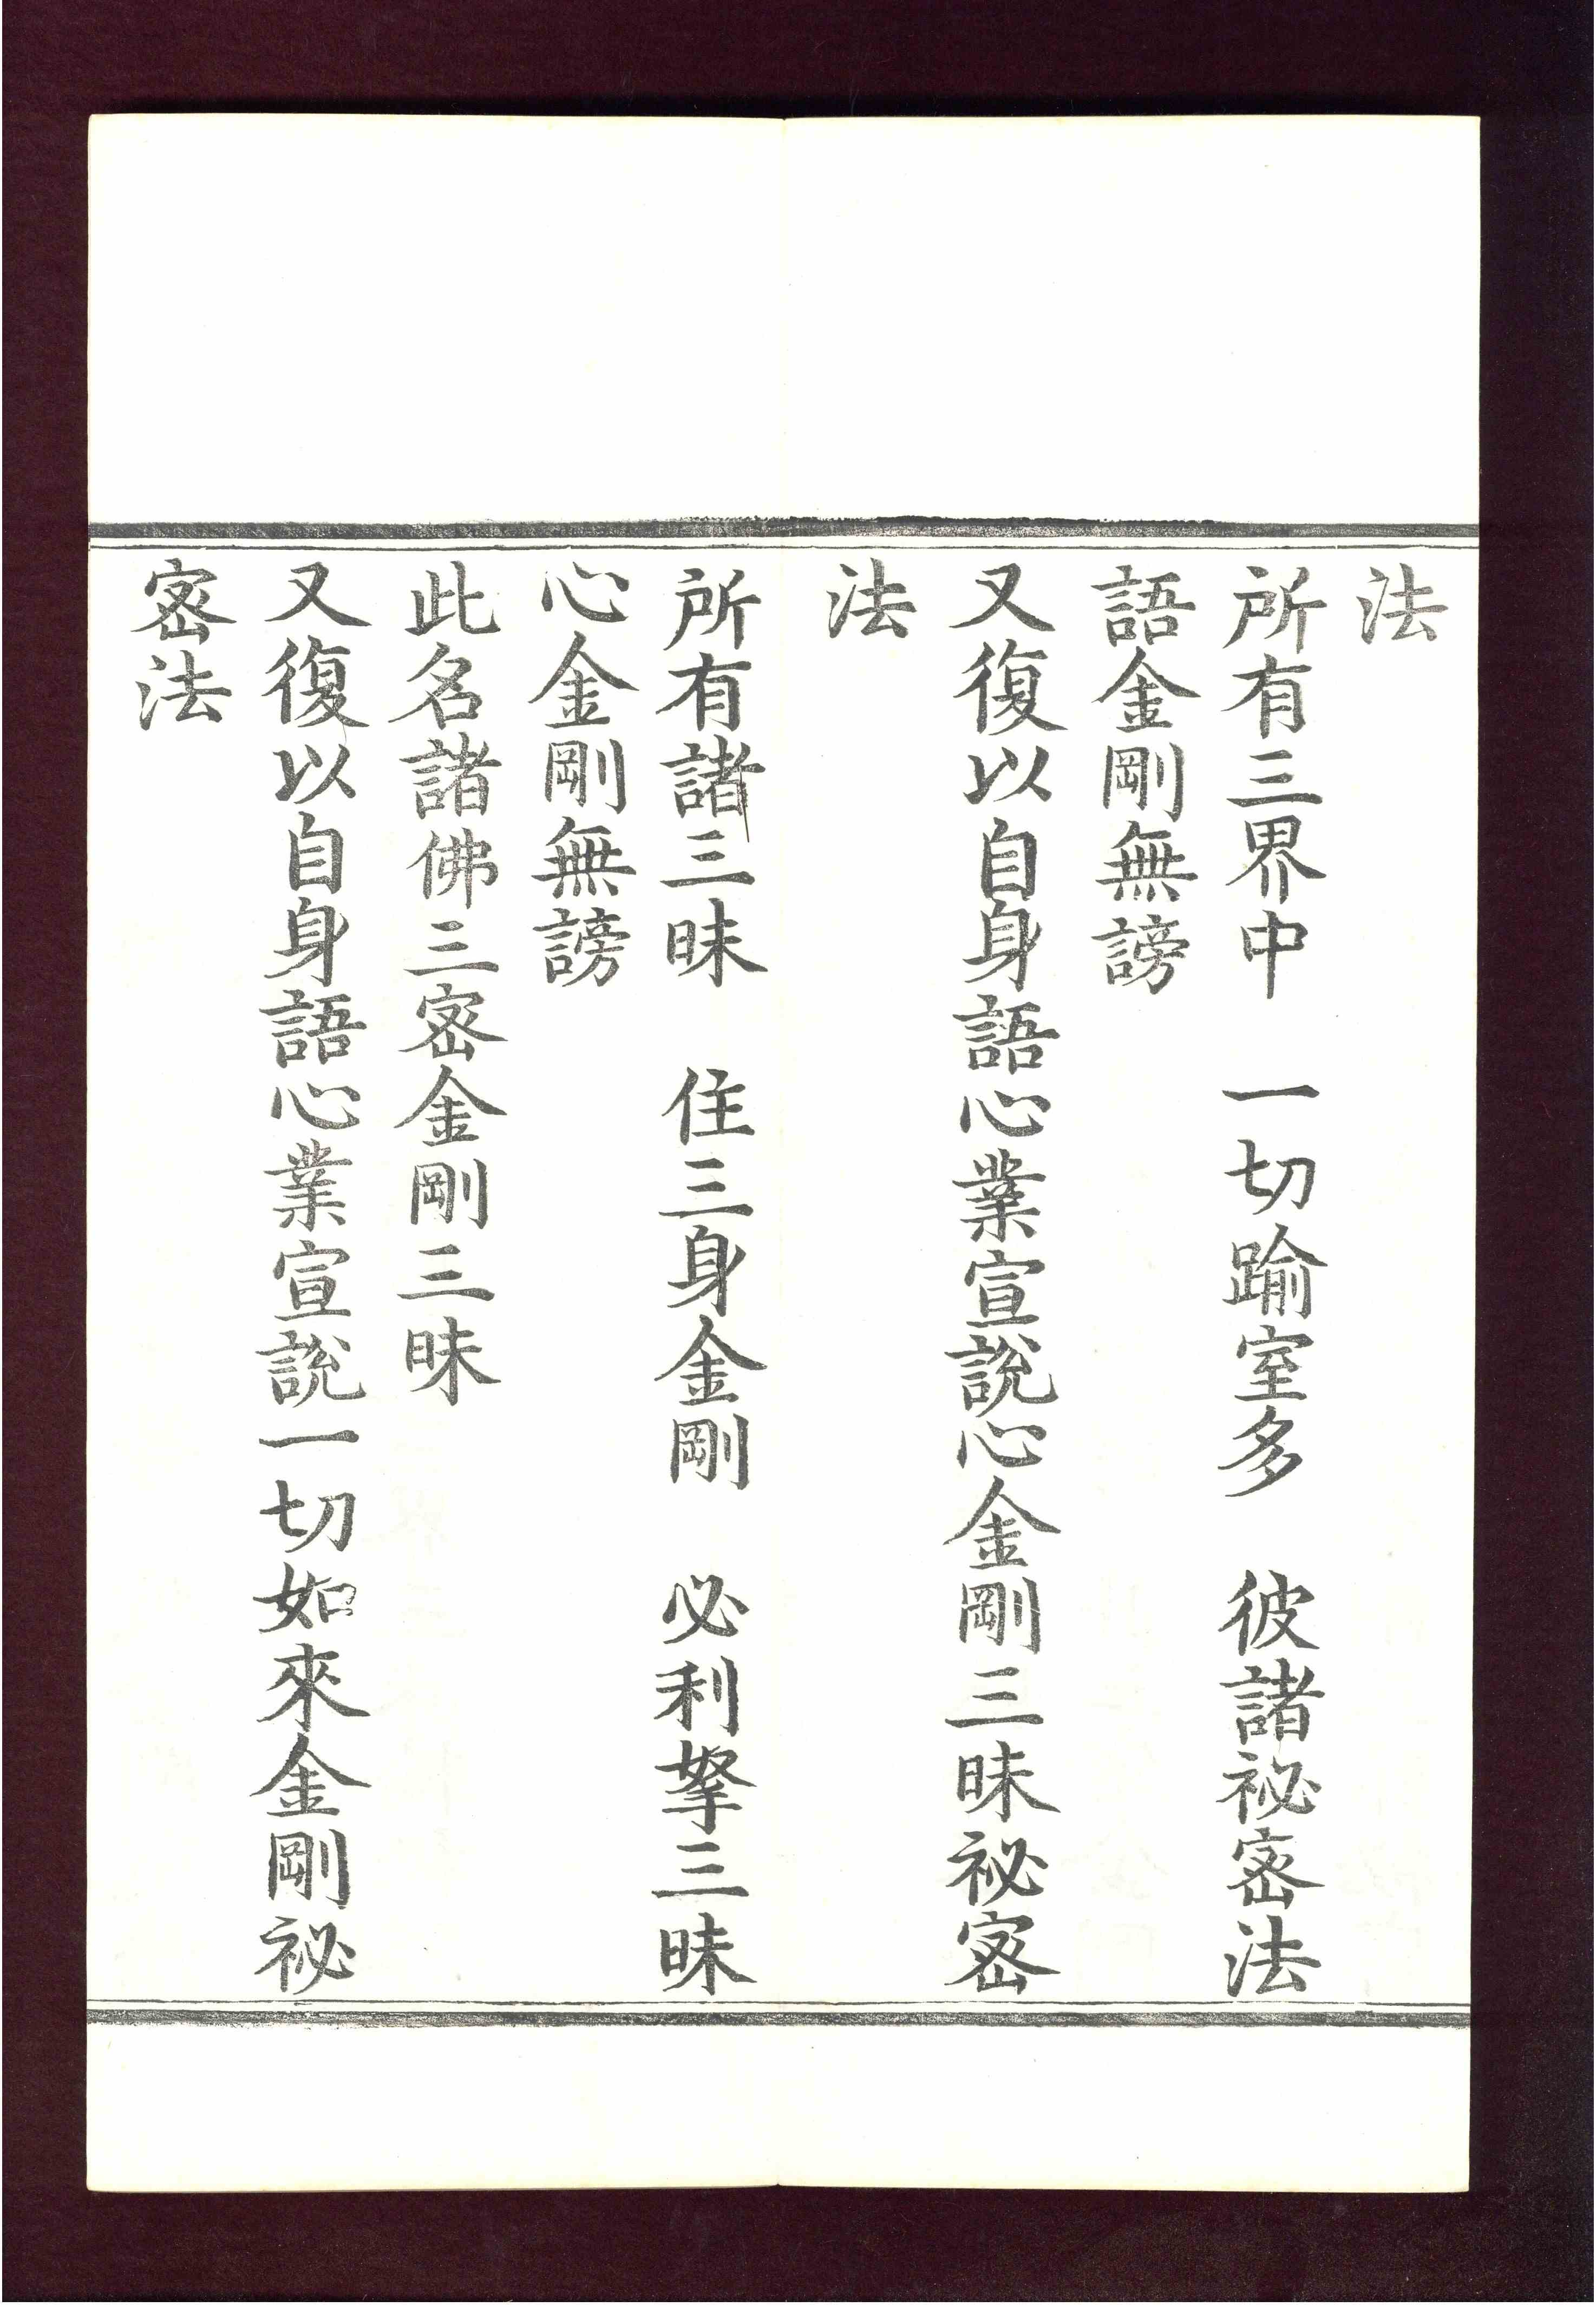 法
所有三界中　一切踰室多　彼諸祕密法
語金剛無謗
又復以自身語心業宣說心金剛三昧祕密
法
所有諸三昧　住三身金剛　必利拏三昧
心金剛無謗
此名諸佛三密金剛三昧
又復以自身語心業宣說一切如來金剛祕
密法